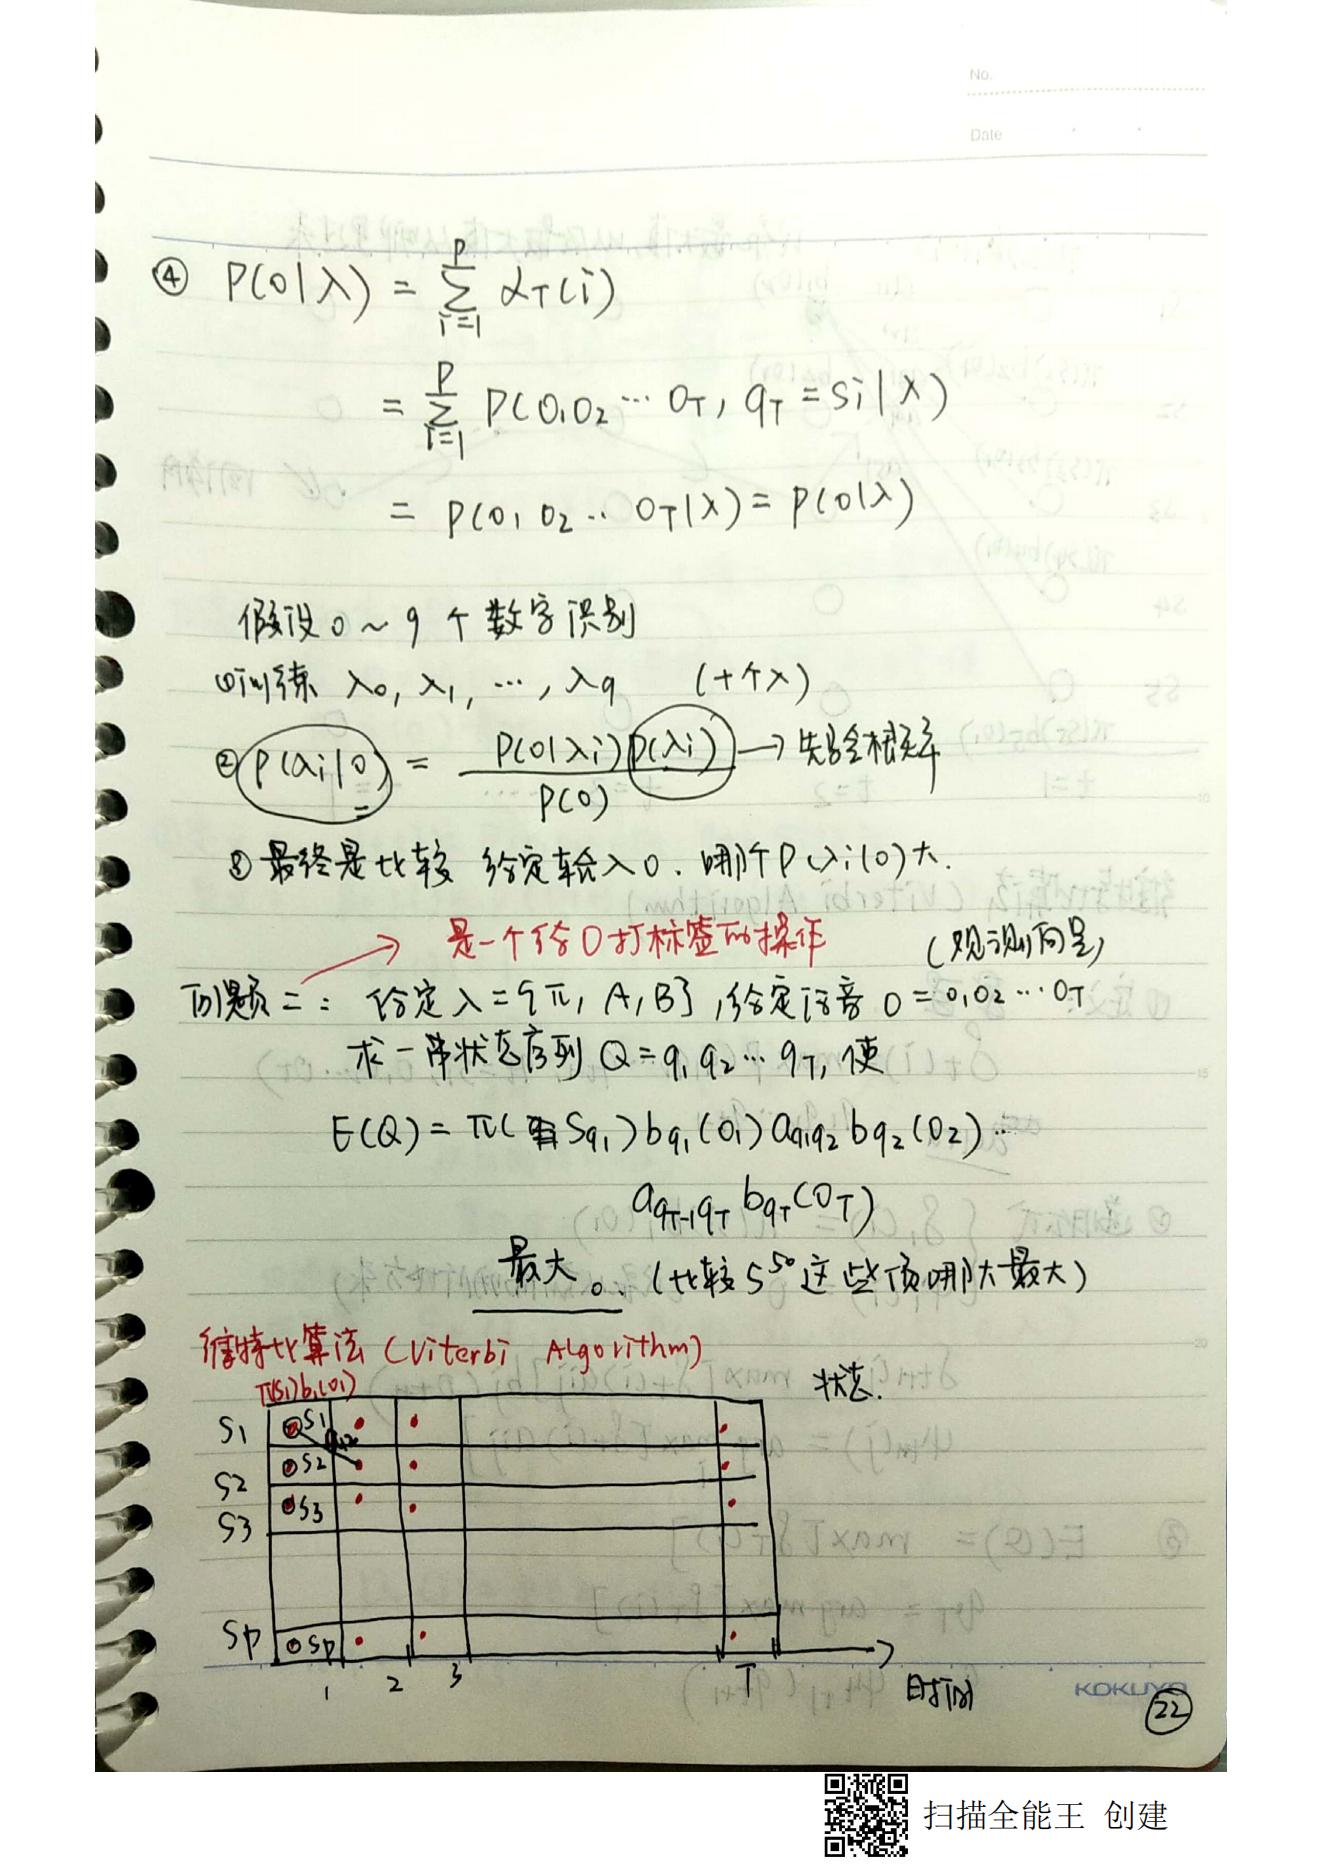 No.
Date
④ P(O|λ) = Σ_{i=1}^{P} α_T(i)
= Σ_{i=1}^{P} P(O₁O₂…O_T, q_T = S_i|λ)
= P(O₁O₂…O_T|λ) = P(O|λ)
假设0~9个数字识别
①训练 λ₀, λ₁, …, λ₉ (十个λ)
② P(λi|O) = P(O|λi)P(λi) / P(O) → 先验概率
③ 最终是比较 给定输入O. 哪个P(λi|O)大.
是一个给O打标签的操作
(观测向量)
问题二: 给定λ={π, A, B}, 给定语音O=O₁O₂…O_T
求一串状态序列Q=q₁q₂…q_T, 使
E(Q) = π(S_{q₁})b_{q₁}(O₁)a_{q₁q₂}b_{q₂}(O₂)…
a_{q_{T-1}q_T}b_{q_T}(O_T)
最大。(比较5⁵⁰这些项哪个最大)
维特比算法 (Viterbi Algorithm)
π(S₁)b₁(O₁)
状态.
S1 S1
S2 S2
S3 S3
Sp Sp
1 2 3 T 时间
KOKUYO
22
扫描全能王 创建